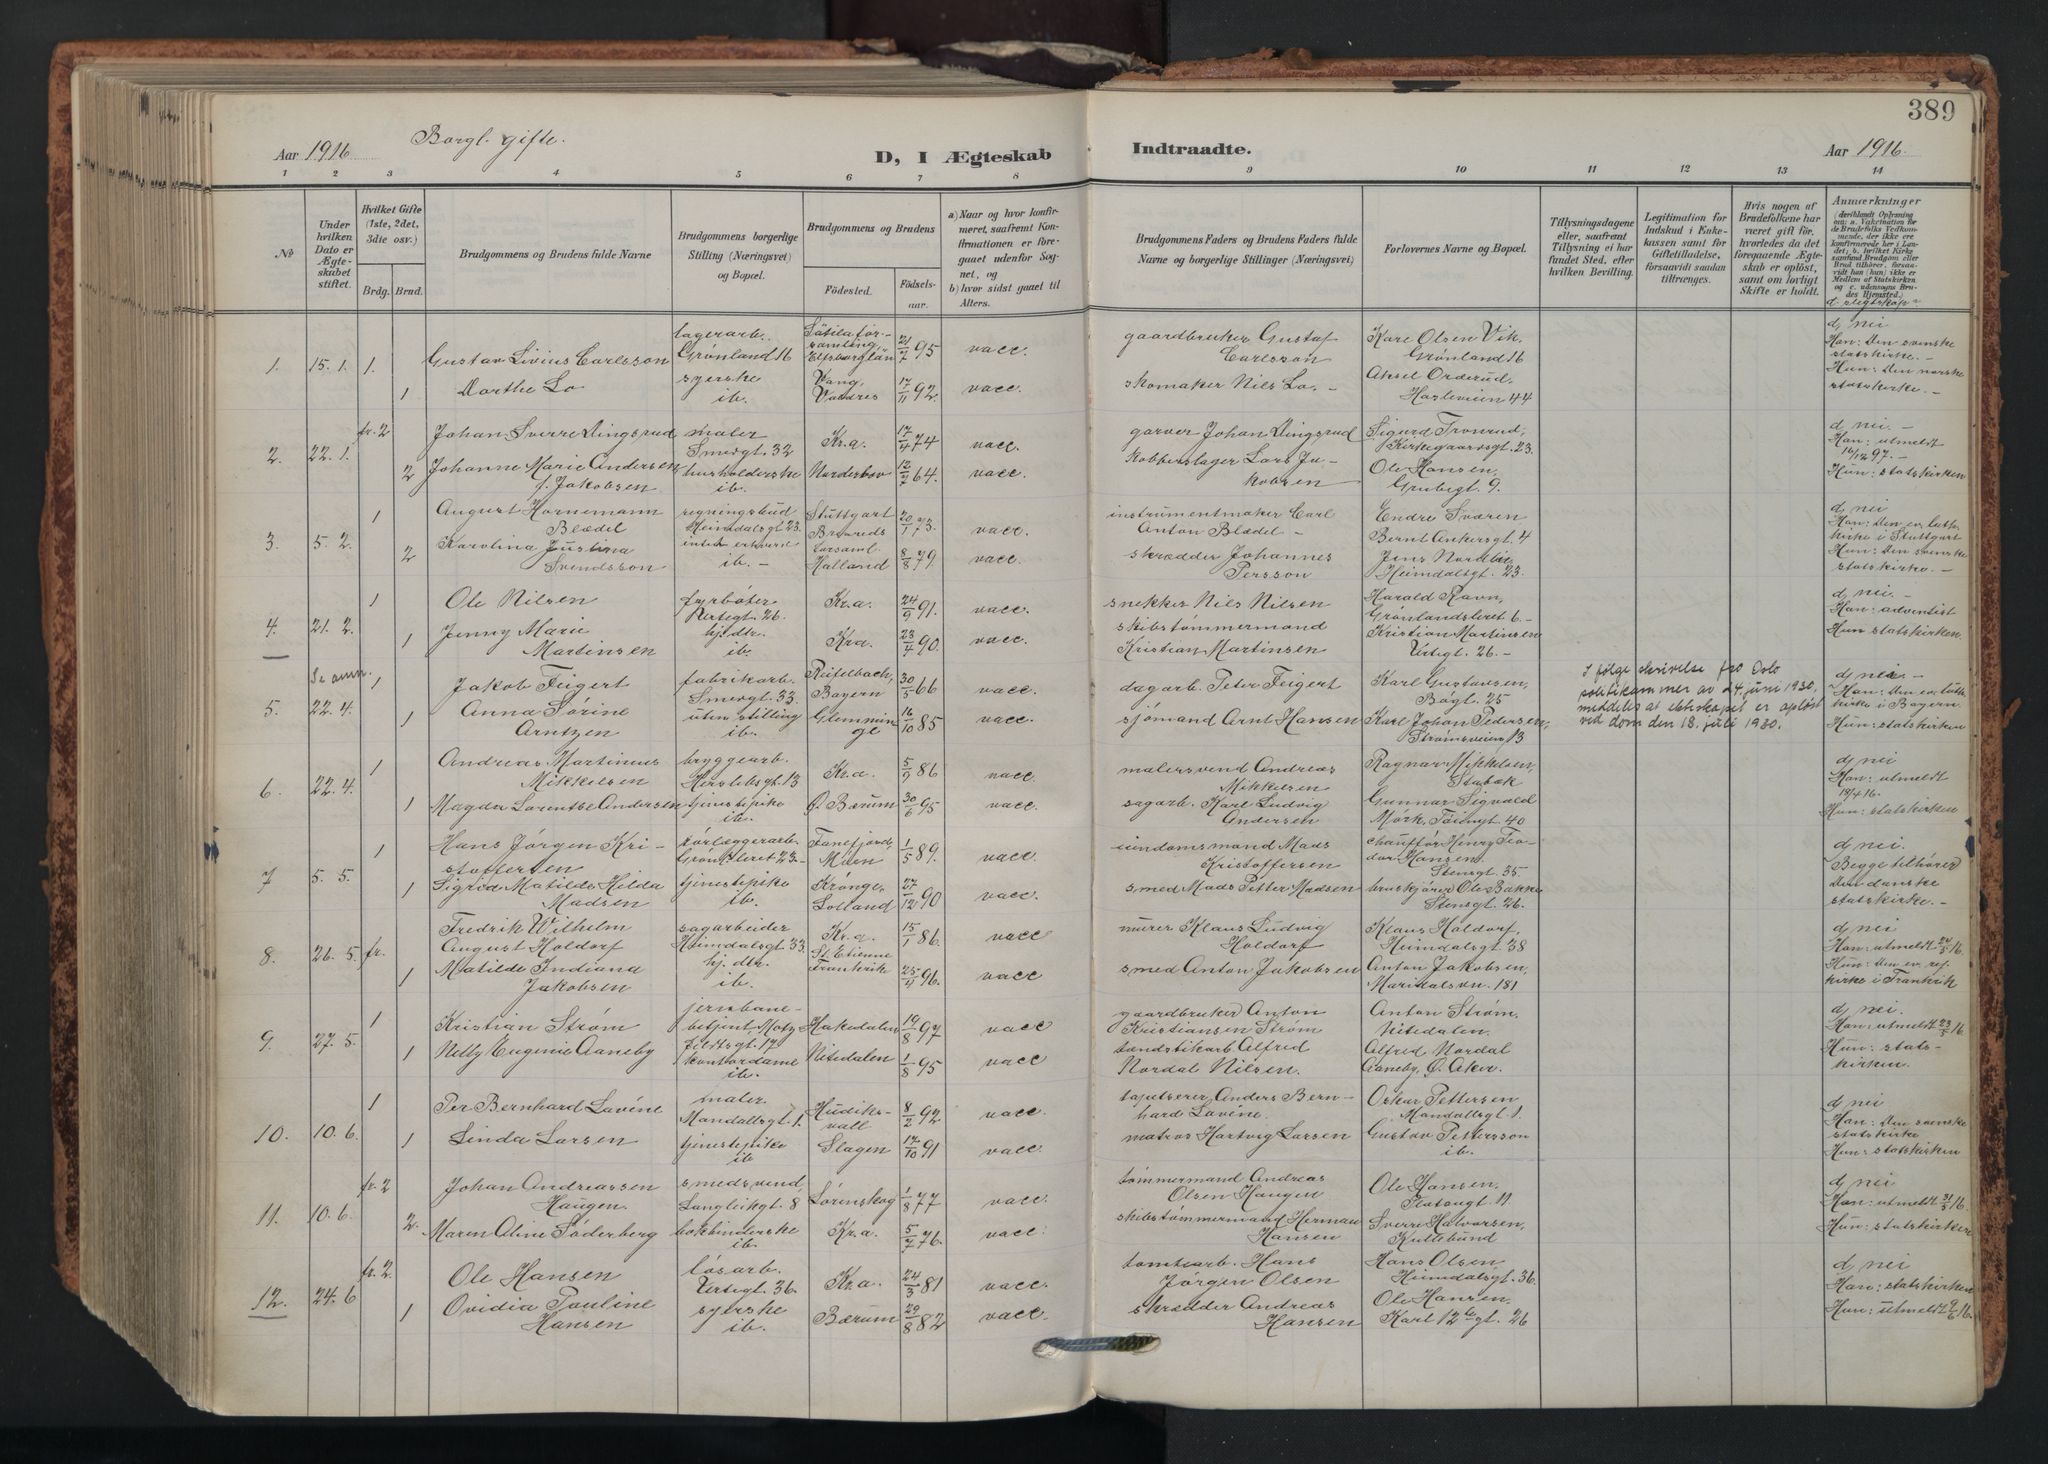 389
Aar 1916 Borgl. gifte. D, I Ægteskab Indtraadte. Aar 1916.
1 2 3 4 5 6 7 8 9 10 11 12 13 14
No
Under hvilken Dato er Ægteskabet stiftet.
Hvilket Gifte (1ste, 2det, 3die osv.)
Brdg. Brud.
Brudgommens og Brudens fulde Navne
Brudgommens borgerlige Stilling (Næringsvei) og Bopæl.
Brudgommens og Brudens
Fødested. Fødsels-aar.
a) Naar og hvor konfirmeret, saafremt Konfirmationen er foregaaet udenfor Sognet, og
b) hvor sidst gaaet til Alters.
Brudgommens Faders og Brudens Faders fulde Navne og borgerlige Stillinger (Næringsvei)
Forlovernes Navne og Bopæl.
Tillysningsdagene eller, saafremt Tillysning ei har fundet Sted, efter hvilken Bevilling.
Legitimation for Indskud i Enkekassen samt for Giftetilladelse, forsaavidt saadan tiltrænges.
Hvis nogen af Brudefolkene har været gift før, hvorledes da det foregaaende Ægteskab er opløst, samt om lovligt Skifte er holdt.
Anmærkninger
d. slegtskap
1. 15.1. 1. Gustav Livius Carlsson lagerarb. Grønland 16 Elfsborg län 21/7 95 vacc. gaardbruker Gustaf Carlsson Kare Olsen Vik Grønland 16 d, nei Han: Den svenske statskirke.-
1 Marthe Lo syerske ib. Vang, Valdres 17/11 92. vacc. skomaker Nils Lo.- Aksel Orderud, Hasleveien 44 Hun: Den norske statskirke.-
2. 22.1. fr. 2 Johan Sverre Dingsrud maler Smergt. 32 Kr.a. 17/4 74 vacc. garver Johan Dingsrud Sigurd Tronrud, Kirkegaardsgt. 23. d, nei.- Han: utmeldt 16/12 97.-
2 Johanne Marie Andersen f. Jakobsen husholderske ib. Norderhov 12/7 64. vacc. kobberslager Lars Jakobsen Ole Hansen, Grubegt. 9. Hun: statskirken.-
3. 5.2. 1 August Hornemann Blædel regningsbud Heimdalsgt. 23. Stuttgart 20/1 73. vacc. instrumentmaker Carl Anton Blædel- Endre Sværen Bernt Ankersgt. 4 d, nei Han: Den ev. luth. kirke i Stuttgart
2 Karolina Justina Svendsson ib.- Halland 8/8 79. vacc. skrædder Johannes Persson Heimdalsgt. 23. Hun: Den svenske statskirke.-
4. 21.2. 1 Ole Nilsen fyrbøter Vertsgt. 26. Kr.a. 24/9 91. vacc. snekker Nils Nilsen Harald Ravn, Grønlandsleret 6.- d, nei.- Han: adventist
1 Jenny Marie Martinsen hj. dtr. ib. Kr.a. 23/4 90. vacc. skibstømmermand Kristian Martinsen Kristian Martinsen Vertsgt. 26.- Hun statskirken.
5. Se anm. 22.4. 1 Jakob Feigert fabrikarb. Smergt. 33. Reifelbach, Bayern 30/5 66 vacc. dagarb. Peter Feigert Karl Gustavsen, Bøgt. 25 d, nei.- Han: Den ev. luth. kirke i Bayern.
1 Anna Sørine Arntzen uten stilling ib. Glemminge 16/10 85 vacc. sjømand Arnt Hansen Karl Johan Pedersen, Strømsveien 13 Hun: statskirken
I følge skrivelse fra Oslo
politikammer av 24. juni 1930,
middeles at ekteskapet er opløst
ved dom den 18. juli 1930.
6. 22.4. 1 Andreas Martinius Mikkelsen bryggearb. Herslebsgt. 13 Kr.a. 5/9 86 vacc. malersvend Andreas Mikkelsen Ragnar Mikkelsen, Stabæk d, nei Han: utmeldt 18/4 16.
1 Magda Lorentse Andersen tjenestepike ib. Ø. Bærum 30/6 95 vacc. sagarb. Karl Ludvig Andersen Gunnar Sigvald Mork, Tøiengt. 40 Hun: statskirken
7 5.5. 1 Hans Jørgen Kristoffersen rørlæggerarb. Grønl.leret 23.- Fanefjord, Møen 1/5 89. vacc. eiendomsmand Mads Kristoffersen chauffør Henry Teodor Hansen, Stensgt. 35 d, nei. Begge tilhører
1 Sigrid Matilde Hilda Madsen tjenestepike ib. Krønge, Lolland 27/12 90 vacc. smed Mads Petter Madsen bruskjører Ole Bakke Stensgt. 26. Den danske statskirke.-
8. 26.5. fr. Fredrik Wilhelm August Holdorf sagarbeider Heimdalsgt. 33. Kr.a. 15/1 86. vacc murer Klaus Ludvig Holdorf Klaus Holdorf, Heimdalsgt. 38 d, nei Han: utmeldt 24/5 16.
1 Matilde Indiana Jakobsen hj. dtr. ib. St. Etienne Frankrike 25/4 96. vacc. smed Anton Jakobsen Anton Jakobsen, Maridalsvn. 181 Hun: Den ev. ref. kirke i Frankrik
9. 27.5. 1 Kristian Strøm jernbanebetjent, Motzfeldtsgt. 17 Hakedalen 19/8 97 vacc gaardbruker Anton Kristiansen Strøm Anton Strøm, Nitedalen. d, nei. Han: utmeldt 23/5 16.
1 Nelly Eugenie Aaneby kontordame ib. Nitedalen 1/8 95 vacc. tandstikarb Alfred Nordal Nilsen. Alfred Nordal Aaneby, Ø. Aker. Hun: statskirken.
10. 10.6. 1 Per Bernhard Lavéne maler Mandallsgt. 1. Hudiksvall 8/2 92 vacc. tapetserer Anders Bernhard Lavéne. Oskar Pettersen Mandallsgt 1. d, nei Han: Den svenske statskirke
1 Linda Larsen tjenestepike ib Slagen 17/10 91 vacc. matros Hartvig Larsen Gustav Pettersson ib. Hun: statskirken
11. 10.6. fr. 2 Johan Andreassen Haugen. smedsvend, Langleikgt. 8 Lørenskog 1/8 77 vacc. tømmermand Andreas Olsen Haugen Ole Hansen, Platougt. 11 d, nei Han: utmeldt 31/5 16.
2. Maren Aline Söderberg bokbinderske ib. Kr.a. 5/7 76. vacc. skibstømmermand Herman Hansen Sverre Halvorsen, Kullebund Hun: statskirken
12. 24.6 fr. 2. Ole Hansen løsarb. Vertsgt. 36. Kr.a. 24/3 81 vacc. tomtearb. Hans Jørgen Olsen Hans Olsen, Heimdalsgt. 36. d, nei Han: statskirken
1 Ovidia Pauline Hansen syerske ib. Bærum 29/8 82 vacc. skrædder Andreas Hansen Ole Hansen, Karl 12tes gt. 26 Hun: utmeldt 9/6 16.